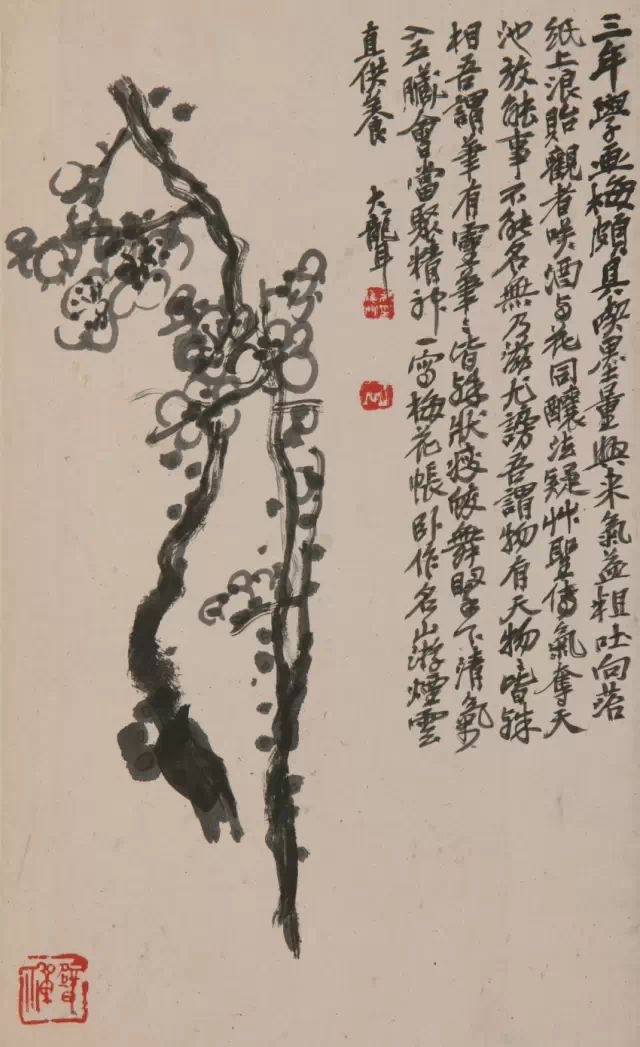 三年學画梅頗具喫墨量興来氣益粗吐向苔
紙上浪貽觀者咲酒与花同釀法疑艸聖傳氣奪天
池放能事不能名無乃滋尤謗吾謂物有天物〻皆殊
相吾謂筆有靈筆〻皆殊狀瘦蛟舞腕下清氣
入五臟會當聚精神一寫梅花帳臥作名山游煙雲
直供養
大聾